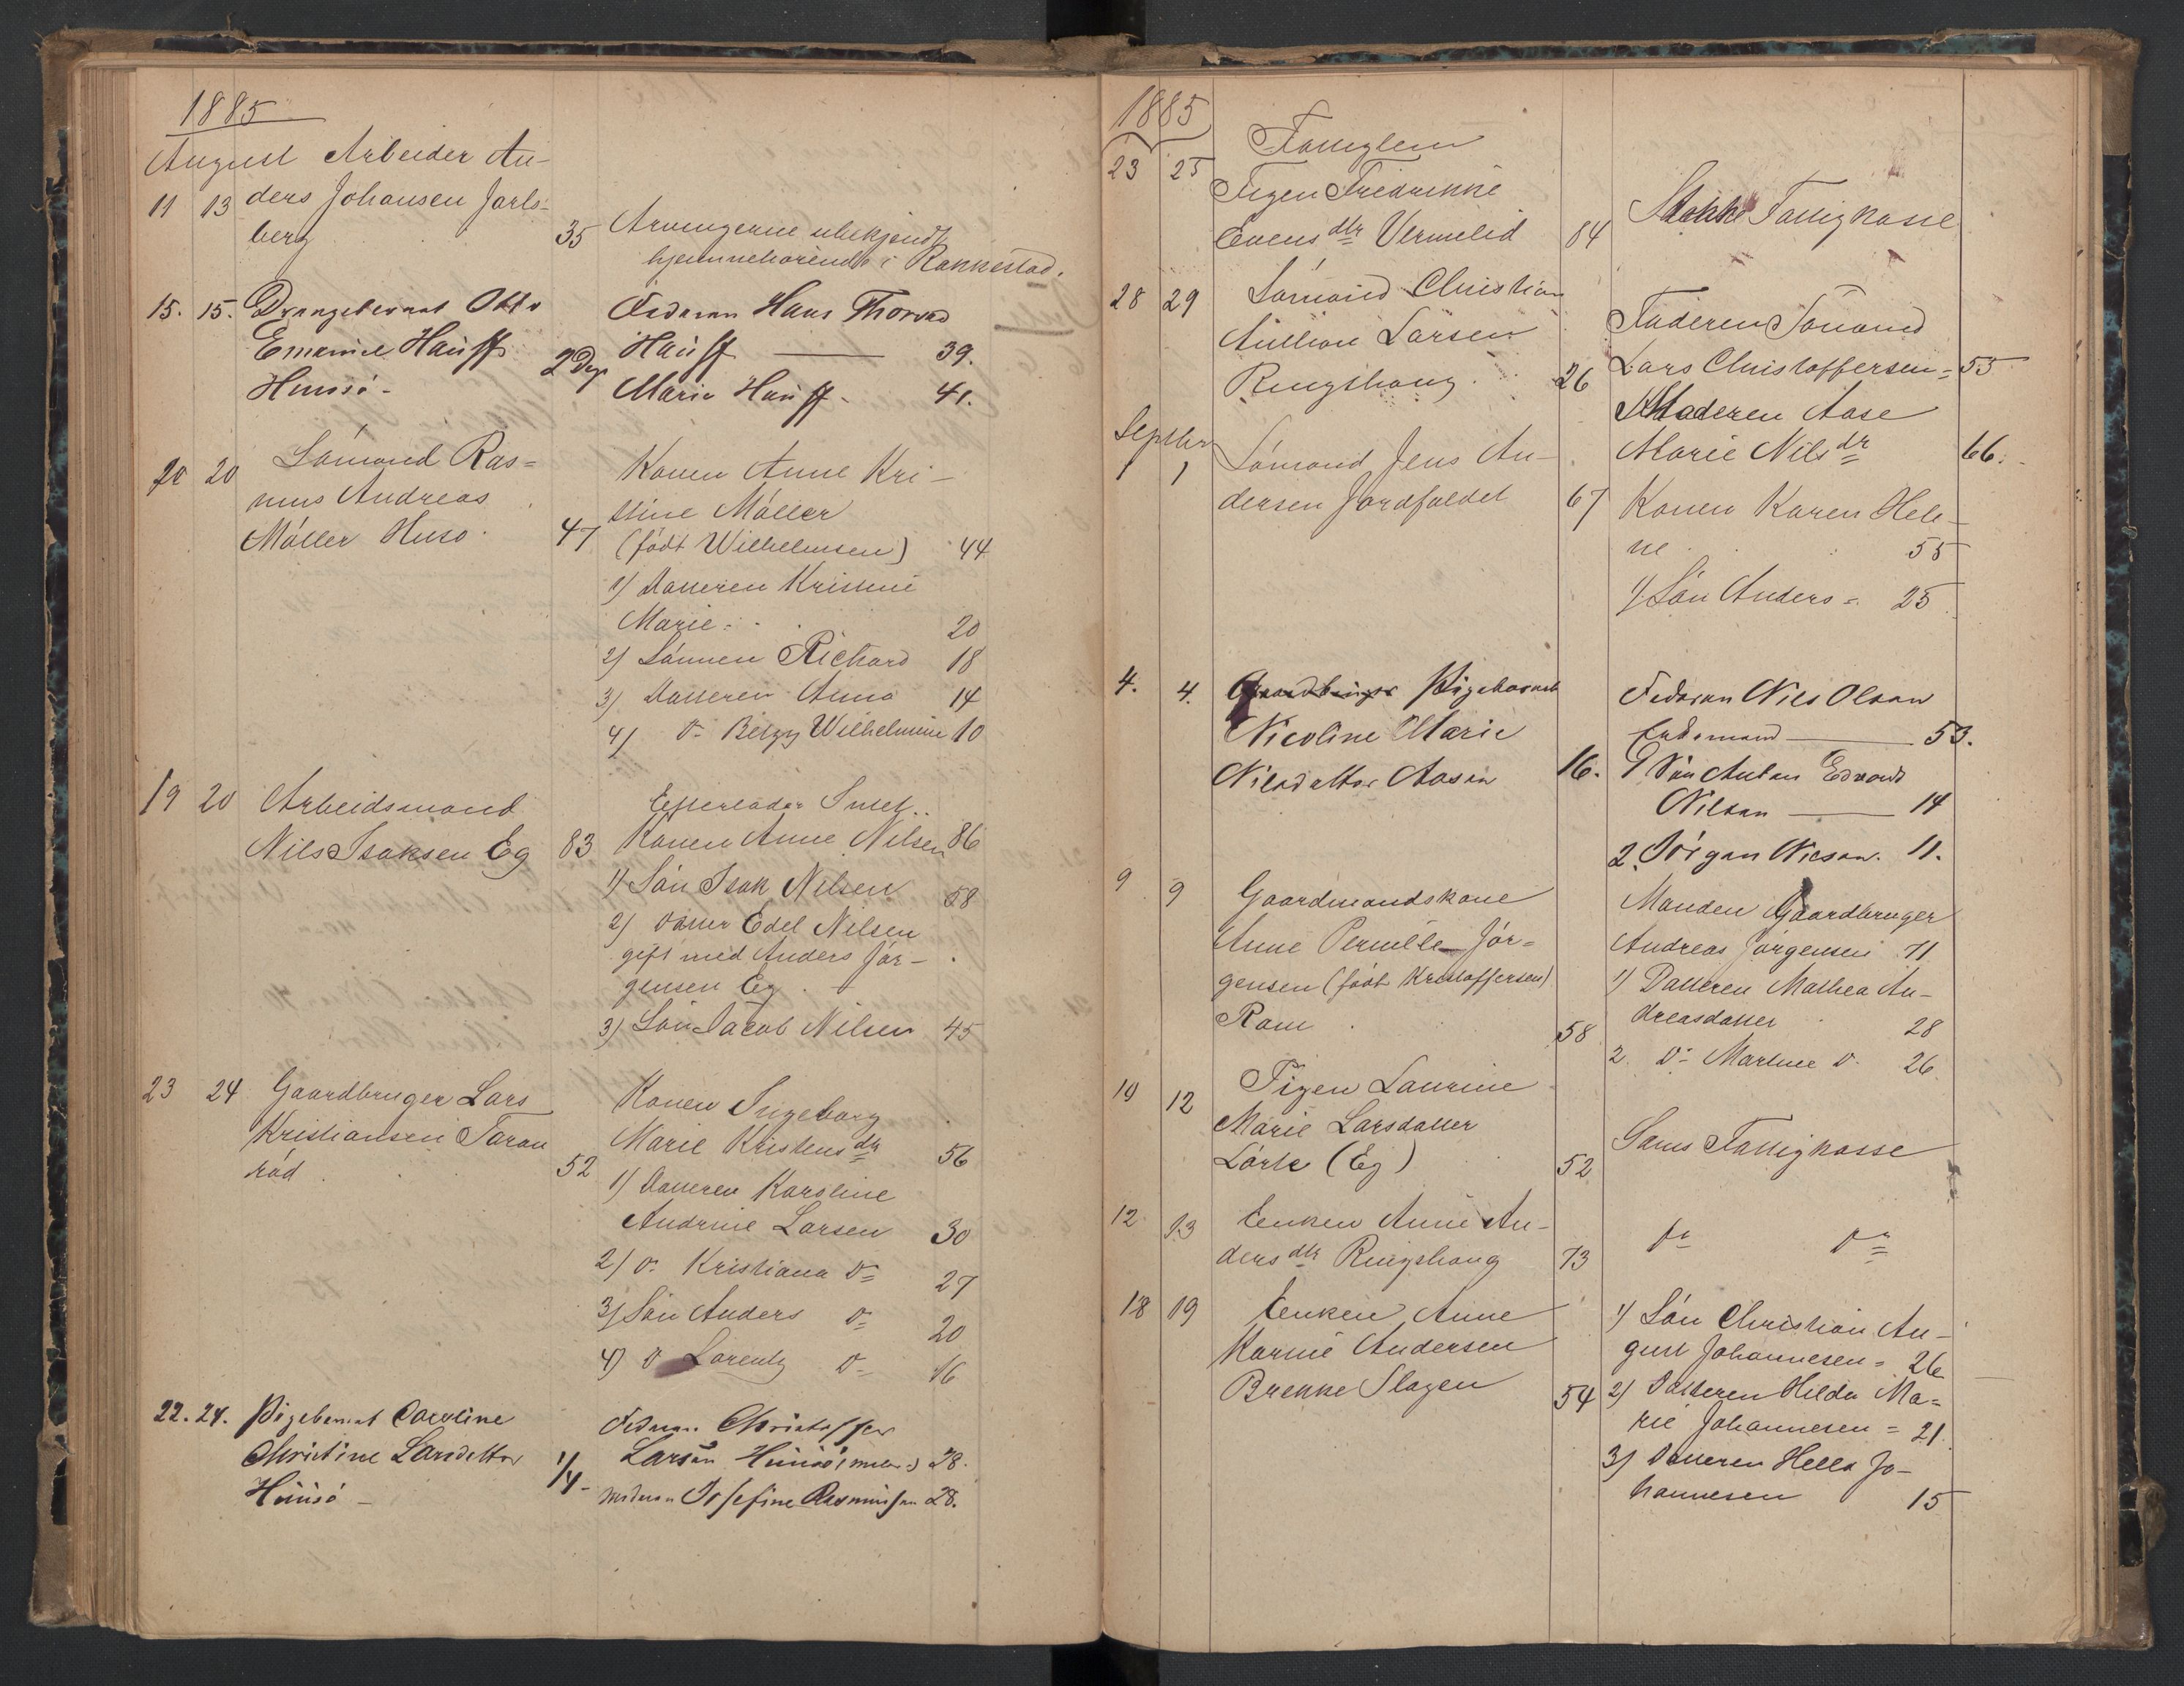 1885
August Arbeider An-
11 13 ders Johansen Jarls-
berg 35
Arvingerne ubekjendt
hjemmehörende i Rakkestad.
15. 15. Drengebarnet Otto
Emanuel Hauff
Husö - 2 Dage
Faderen Hans Thorvad
Hauff — 39.
Marie Hauff - 41.
20 20 Sömand Ras=
mus Andreas
Möller Husö. 47
Konen Anne Kri-
stine Möller
(född Wilhelmsen) 44
1) Datteren Kristine
Marie 20
2) Sönnen Richard 18
3) Datteren Anna 14
4) Do Betzy Wilhelmine 10
19 20 Arbeidsmand
Nils Isaksen Eg 83
Efterlader
Konen Anne Nilsen 86
1) Sön Isak Nilsen 58
2) Datter Edel Nilsen
gift med Anders Jör-
gensen Eg
3) Sön Jacob Nilsen 45
23 24 Gaardbruger Lars
Kristiansen Taran
röd 52
Konen Ingeborg
Marie Kristensdtr 56
1) Datteren Karoline
Andrine Larsen 30
2) Do Kristiana Do 27
3) Sön Anders Do 20
4) Do Lorentz Do 16
22. 24. Pigebarnet Caroline
Christine Larsdatter
Husö - 1/4 -
Faderen Christoffer
Larsen Husö 28.
Moderen Josefine Rasmussen 28.
1885
23 25 Fattiglem
Pigen Fredrikke
Evensdtr Vermelid 84
Stokke Fattigkasse
28 29 Sömand Christian
Larsen
Ringshaug 26
Faderen Sömand
Lars Christoffersen = 55
Moderen Aase
Marie Nilsdr 66.
Septbr
1 1 Sömand Jens An-
dersen Jordfaldet 67
Konen Karen Hele-
ne 55
1) Sön Anders = 25
4. 4. Gaardbruger Pigebarnet
Nicoline Marie
Nilsdatter Aasen 16.
Faderen Nils Olsen
53.
1 Sön Anton Edvard
Nilsen — 14
2. Jörgen Nilsen. 11.
9 9 Gaardmandskone
Anne Pernille Jör=
gensen (född Kristoffersen)
Ram 58
Manden Gaardbruger
Andreas Jörgensen 71
1) Datteren Mathea An-
dreasdatter 28
2 Do Martine Do 26
10 12 Pigen Laurine
Marie Larsdatter
Lörke (Eg) 52
Sems Fattigkasse
12 13 Enken Anne An-
dersdtr Ringshaug 73
Do Do
18 19 Enken Anne
Karine Andersen
Brekke Slagen 54
1) Sön Christian Au-
gust Johannesen = 26
2) Datteren Hilda Ma=
rie Johannesen = 21
3) Datteren Hella Jo-
hannesen 15